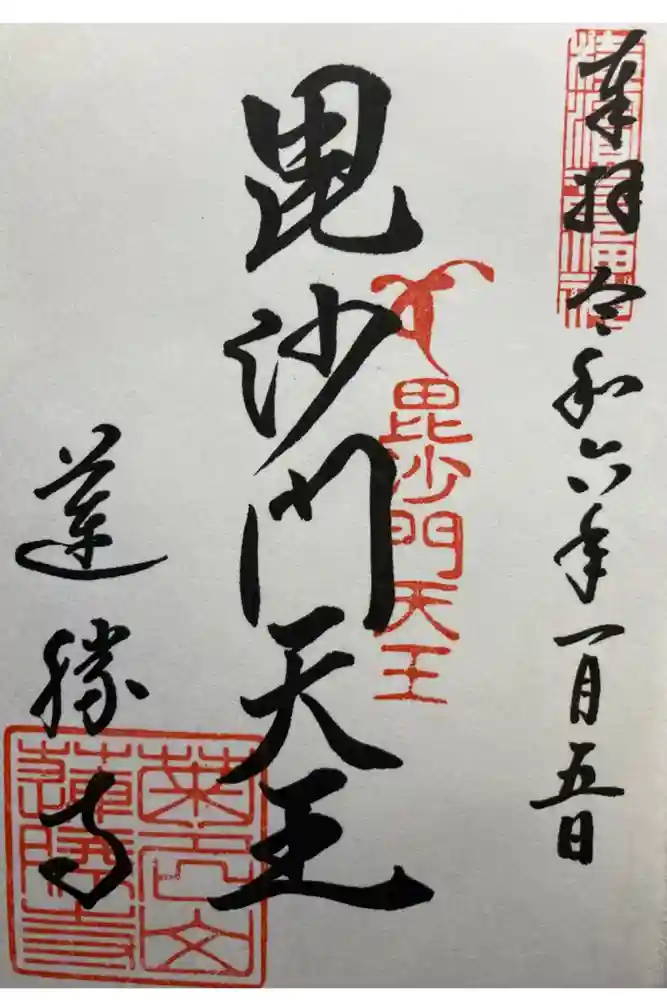 奉拝 令和六年一月五日
毘沙門天王
毘沙門天王
蓮勝寺
蓮勝寺